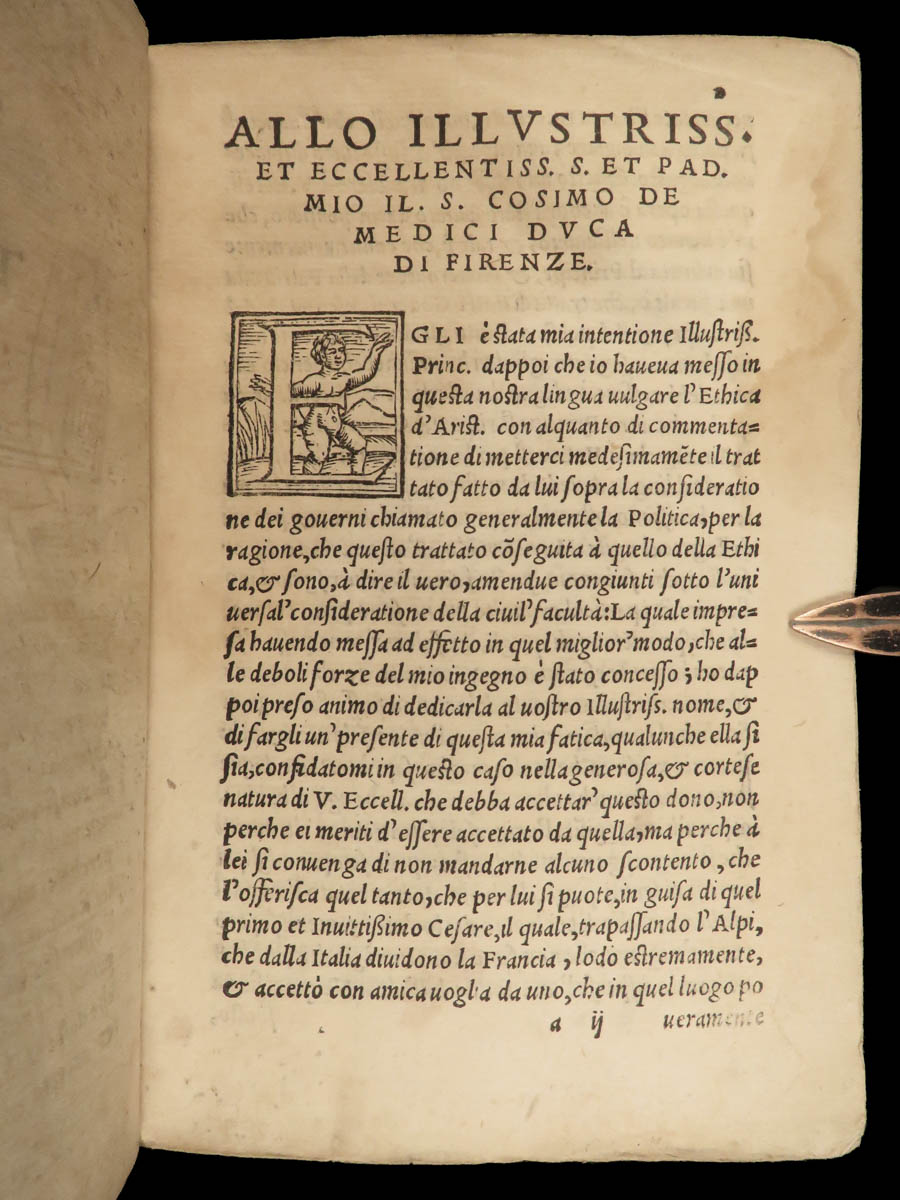 2
ALLO ILLVSTRISS.
ET ECCELLENTISS. S. ET PAD.
MIO IL. S. COSIMO DE
MEDICI DVCA
DI FIRENZE.
EGLI è stata mia intentione Illustriß.
Princ. dappoi che io haueua messo in
questa nostra lingua uulgare l'Ethica
d'Arist. con alquanto di commenta=
tione di metterci medesimamẽte il trat
tato fatto da lui sopra la consideratio
ne dei gouerni chiamato generalmente la Politica, per la
ragione, che questo trattato cõseguita à quello della Ethi
ca, & sono, à dire il uero, amendue congiunti sotto l'uni
uersal' consideratione della ciuil' facultà: La quale impre=
sa hauendo messa ad effetto in quel miglior' modo, che al=
le deboli forze del mio ingegno è stato concesso; ho dap
poi preso animo di dedicarla al uostro Illustriss. nome, &
di fargli un' presente di questa mia fatica, qualunche ella si
sia, confidatomi in questo caso nella generosa, & cortese
natura di V. Eccell. che debba accettar' questo dono, non
perche ei meriti d'essere accettato da quella, ma perche à
lei si conuenga di non mandarne alcuno scontento, che
l'offerisca quel tanto, che per lui si puote, in guisa di quel
primo et Inuittißimo Cesare, il quale, trapassando l'Alpi,
che dalla Italia diuidono la Francia, lodò estremamente,
& accettò con amica uoglia da uno, che in quel luogo po
a ij ueramente